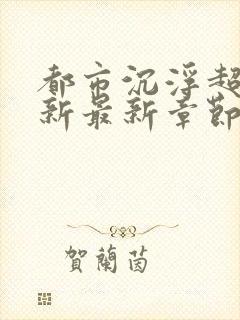 都市沉浮超
新最新章節
賀蘭茵